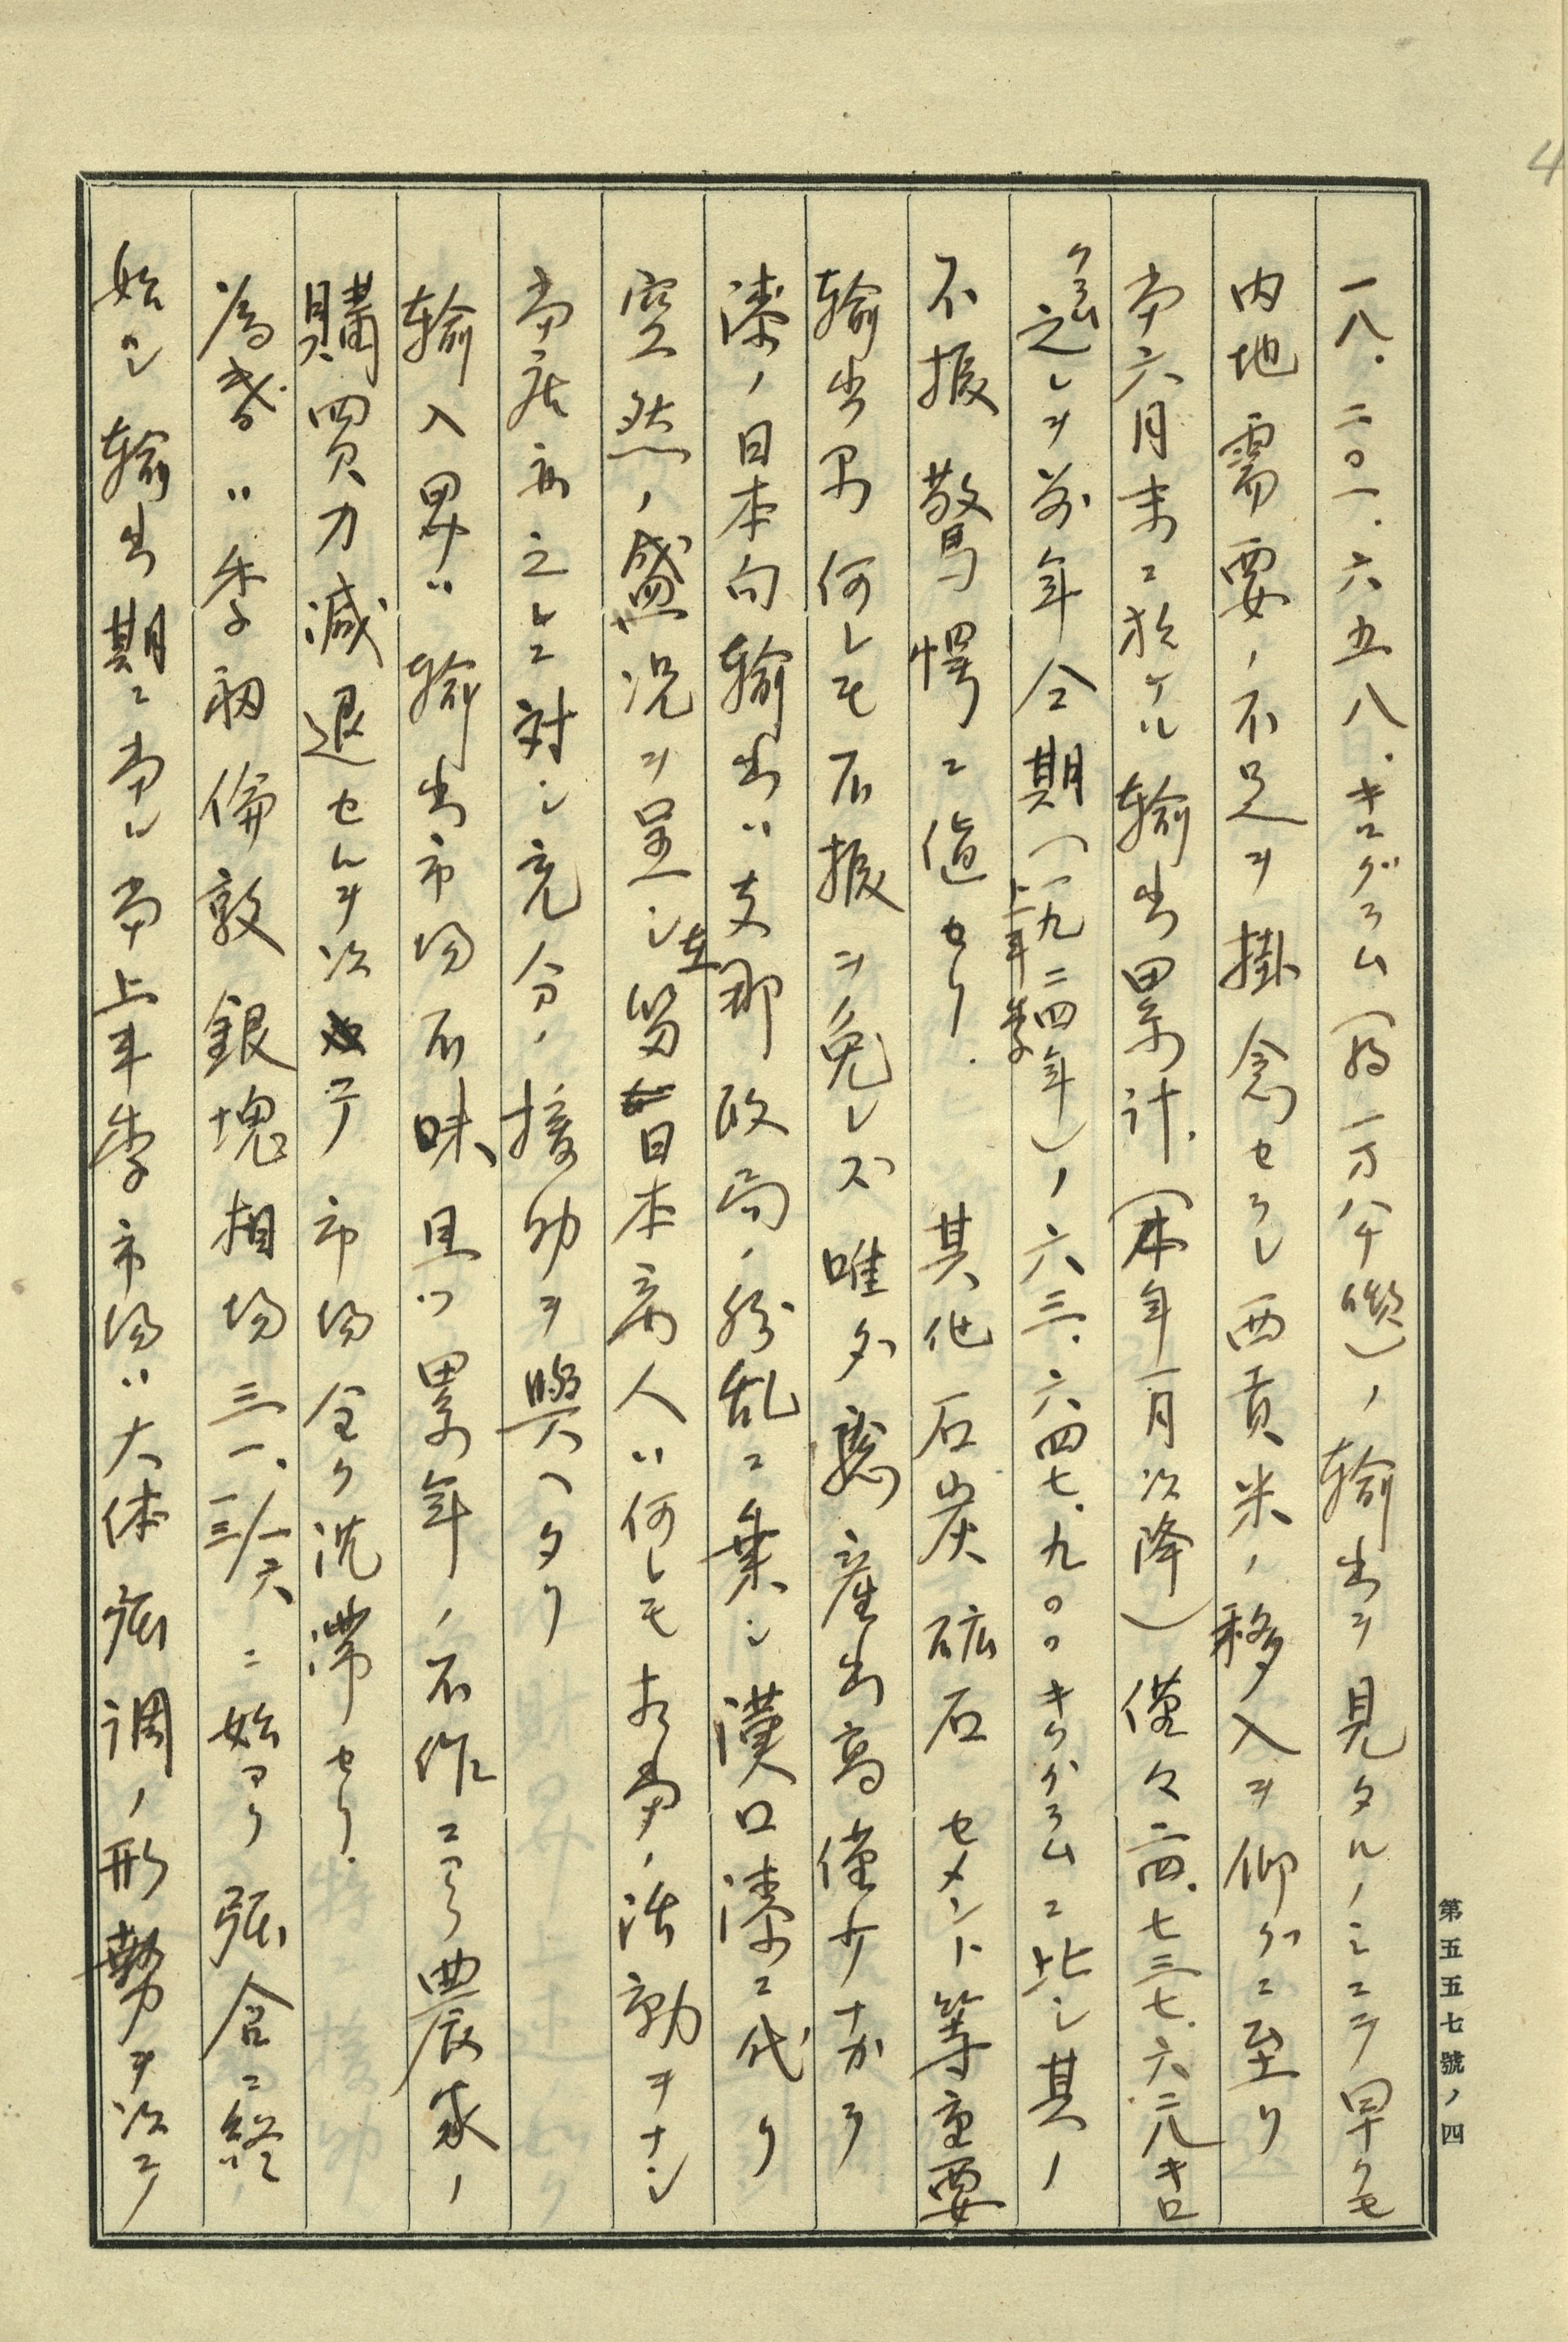 4
一八.二〇一.六五八.キログラム(約一万八千噸)ノ輸出ヲ見タルノミニテ早クモ
内地需要ノ不足ヲ掛念セラレ西貢米ノ移入ヲ仰グニ至リ
本六月末ニ於ケル輸出累計.(本年一月以降)僅々二四.七三七.六二八キロ
グラム之レヲ前年仝期(一九二四年上半季)ノ六三.六四七.九〇〇キログラムニ比シ其ノ
不振驚愕ニ値セリ. 其他石炭砿石セメント等重要
輸出界何レモ不振ヲ免レズ唯ダ産出高僅少ナガラ
漆ノ日本向輸出ハ支那政局ノ紛乱ニ乗ジ漢口漆ニ代リ
空然ノ盛況ヲ呈シ在留日本商人ハ何レモ相当ノ活動ヲナシ
当店亦之レニ対シ充分ノ援助ヲ與ヘタリ
輸入界ハ輸出市場不味且ツ累年ノ不作ニヨリ農家ノ
購買力減退セルヲ以テ市場全ク沈滞セリ.
為替ハ季初倫敦銀塊相場三一.一三/一六ニ始マリ強含ニ終
始シ輸出期ニ当ル当上半季市場ハ大体強調ノ形勢ヲ以テ
第五五七號ノ四